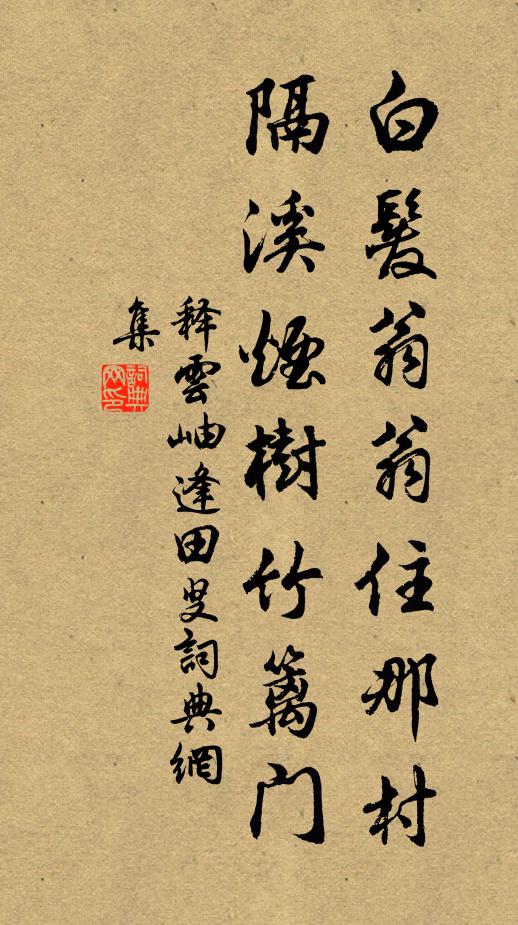 白髮翁翁住那村
隔溪煙樹竹籬門
释雲岫逢田叟詞典網
集
詞典
网印